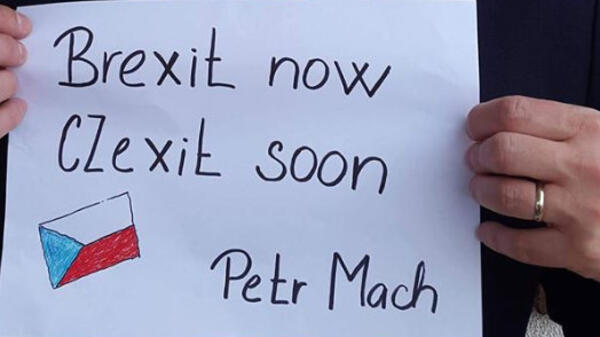 Brexit now
CZexit soon
Petr Mach